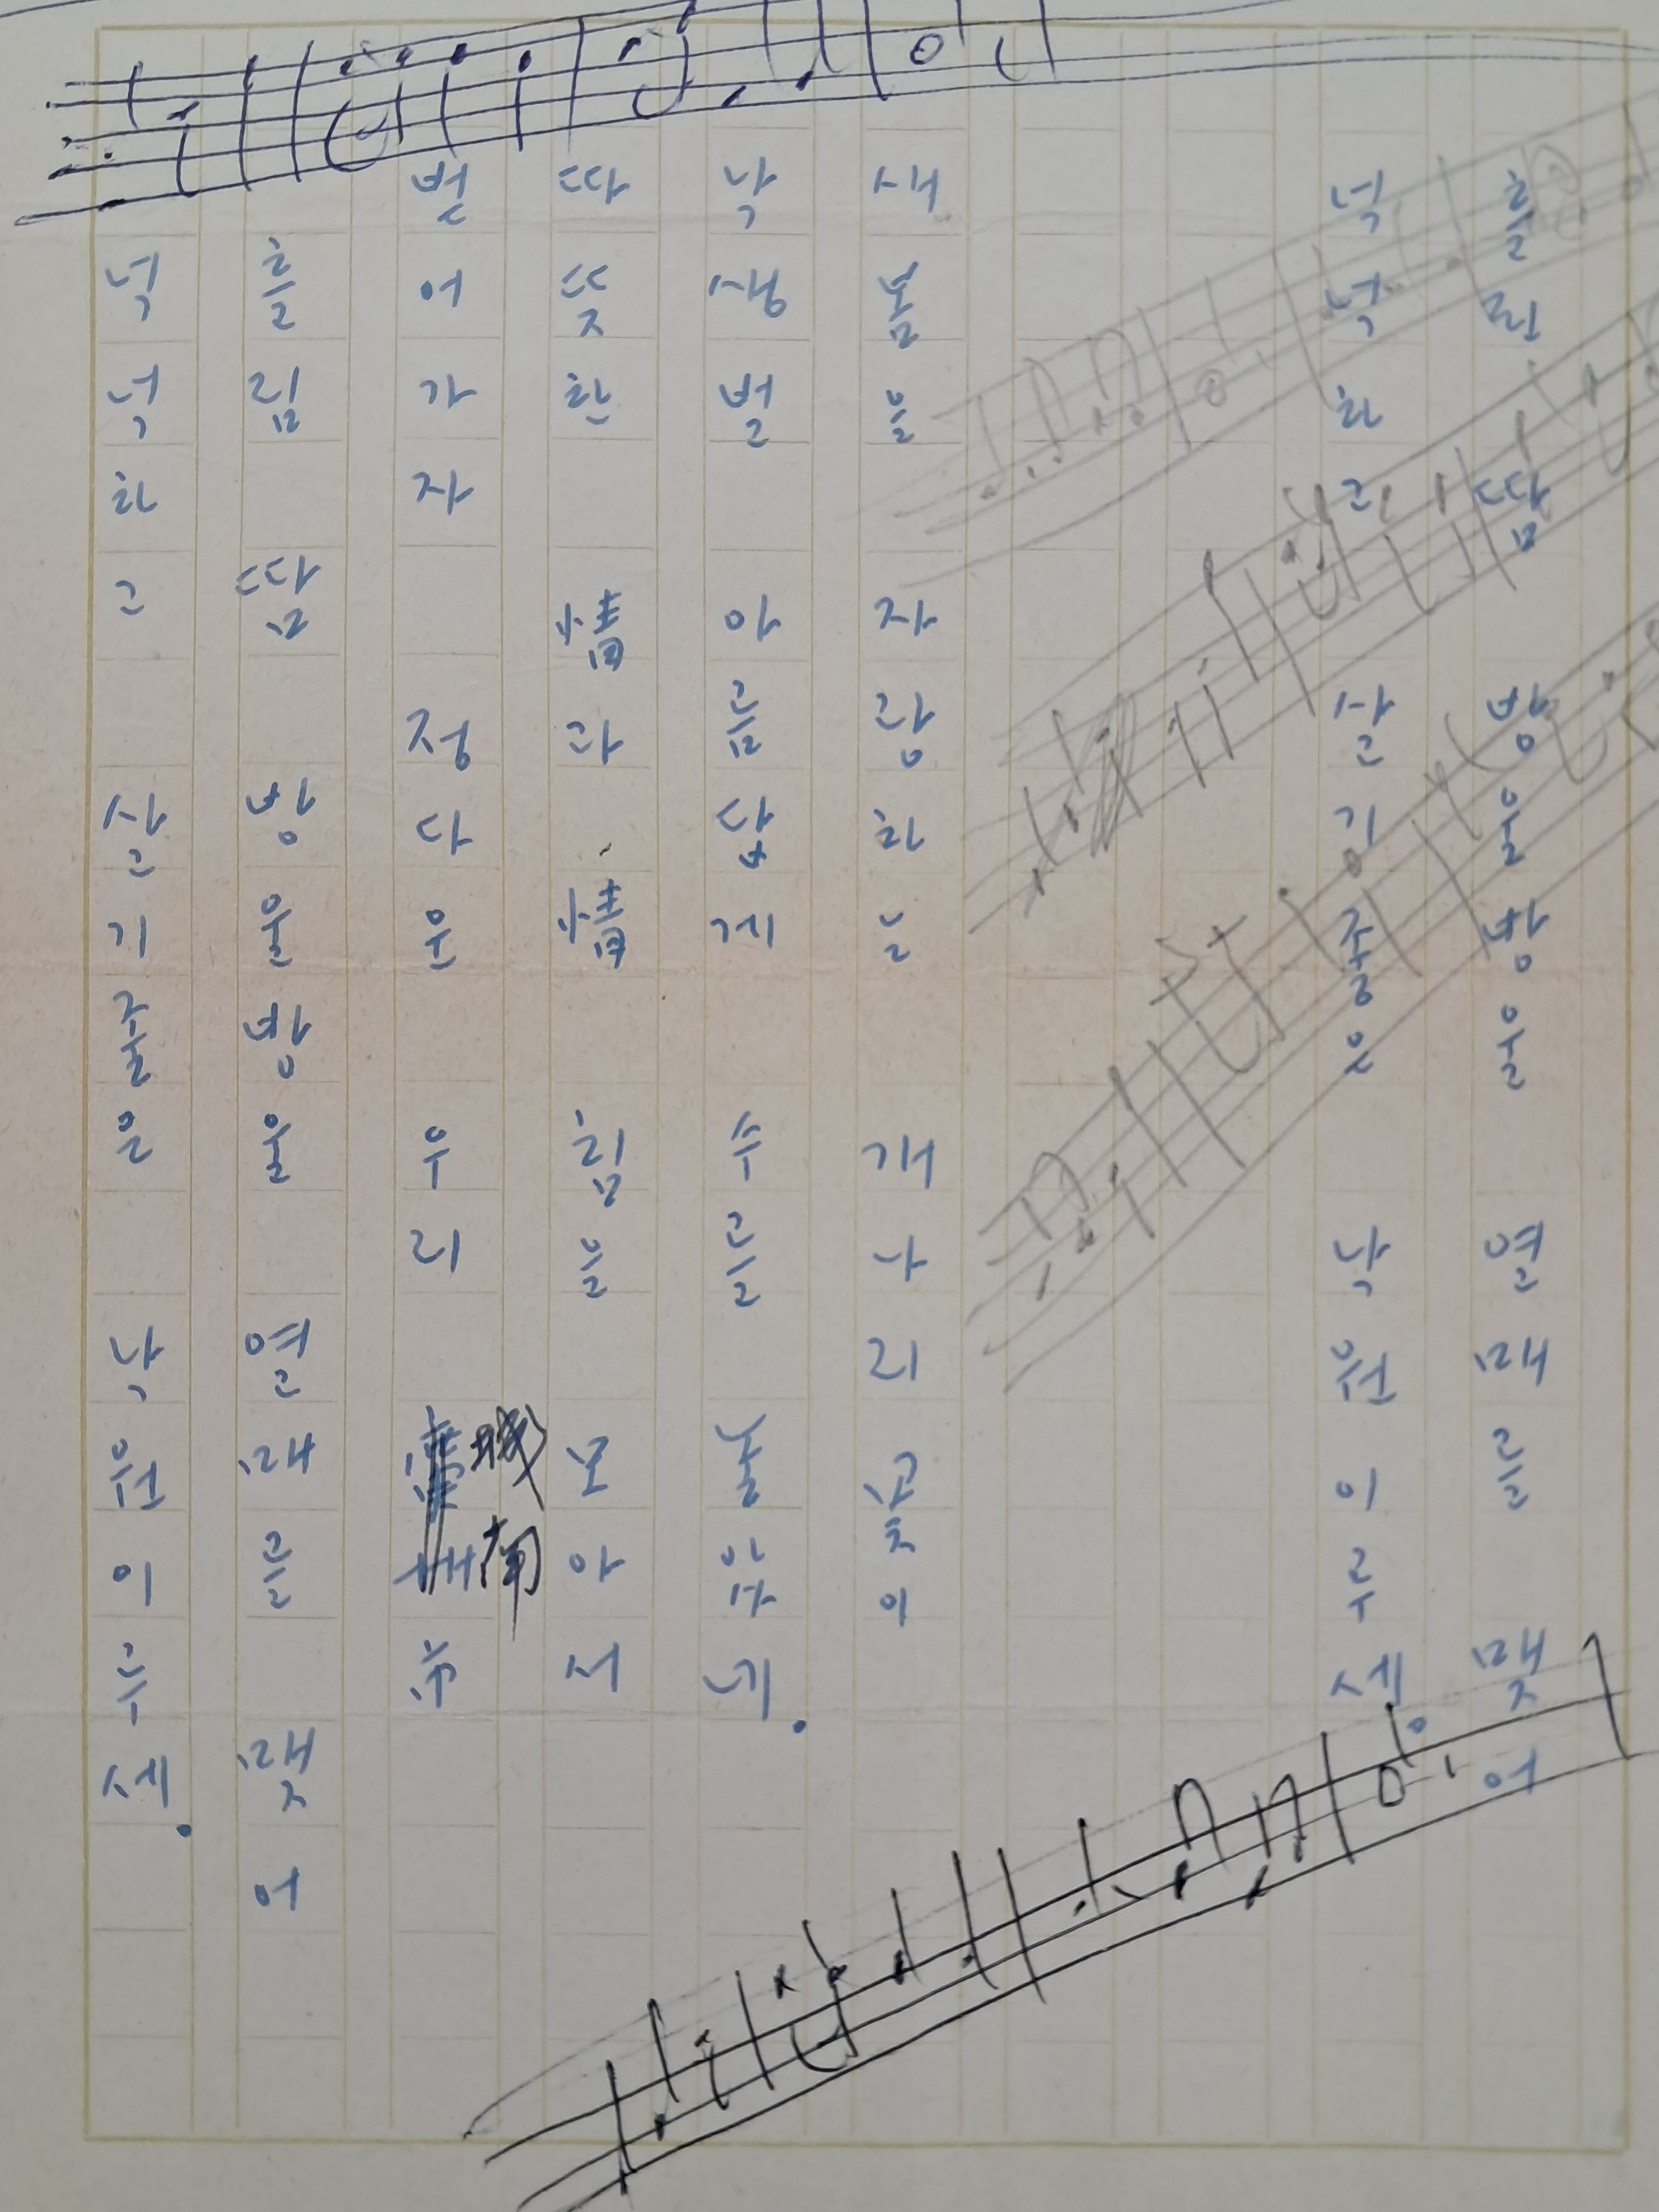 흘린 땀 방울방울 열매를 맺어
넉넉하고 살기좋은 낙원이루세.
새봄을 자랑하는 개나리꽃이
낙생벌 아름답게 수를 놓았네.
따뜻한 情과 情 힘을 모아서
벋어가자 정다운 우리 城南市
흘림 땀 방울방울 열매를 맺어
넉넉하고 살기좋은 낙원이루세.